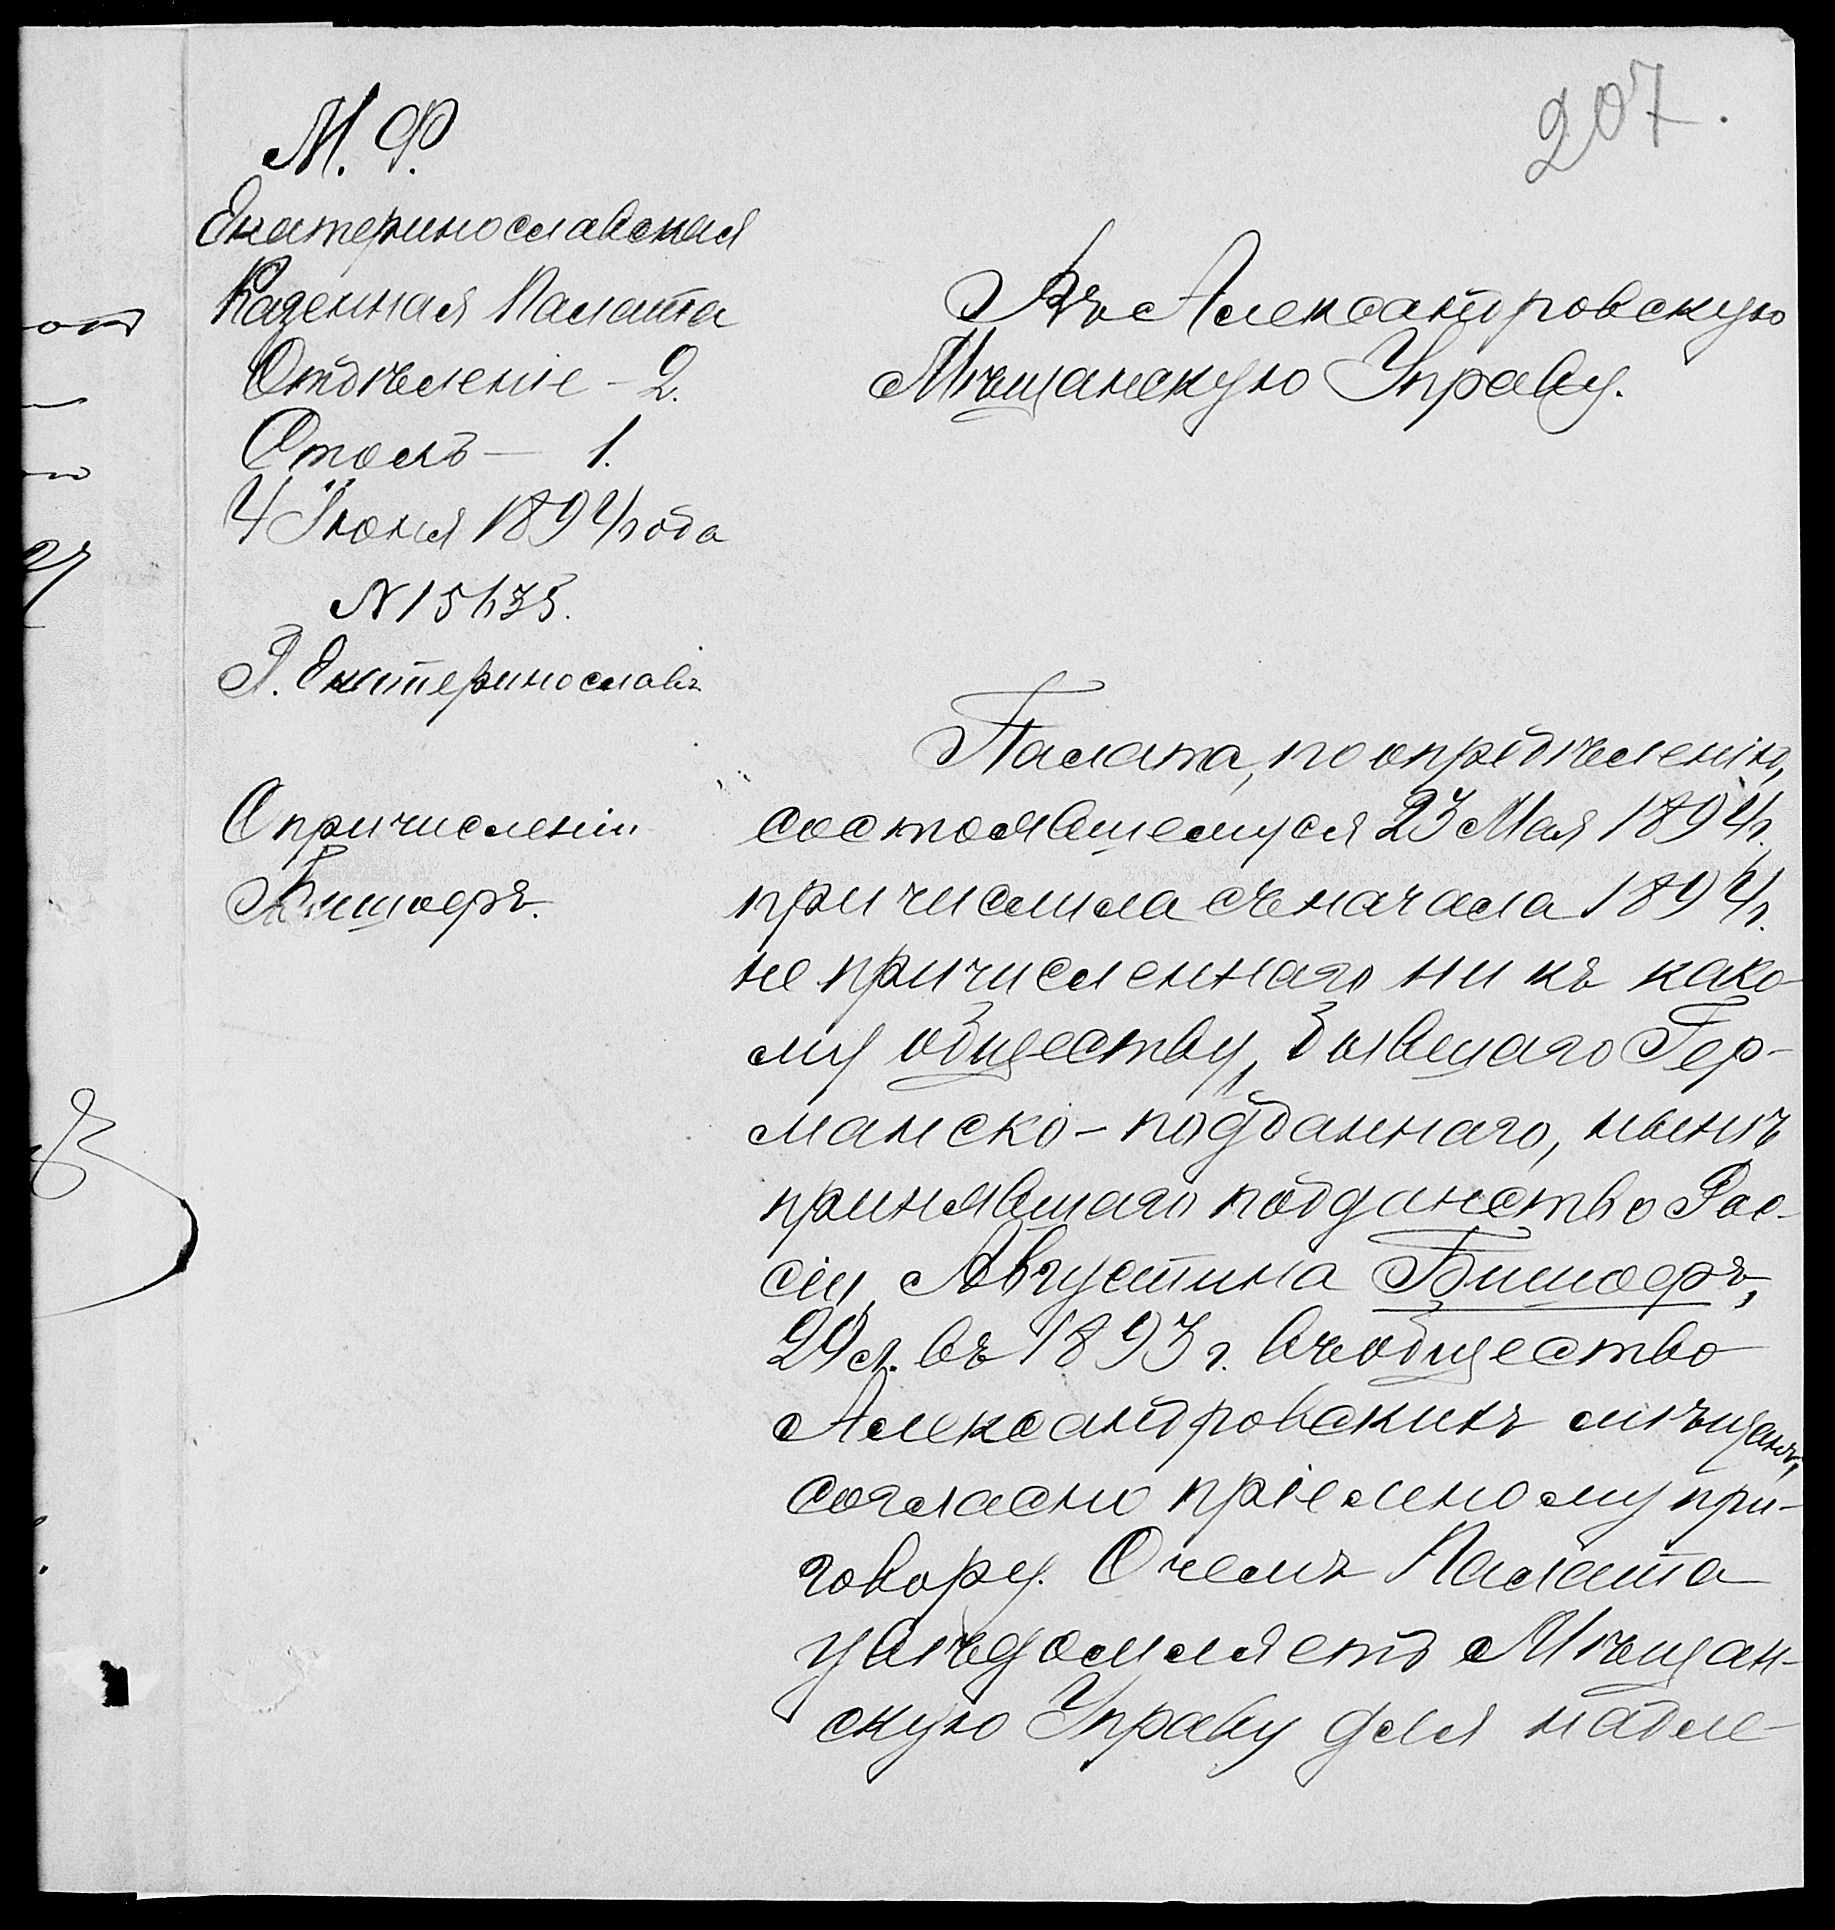 207.
М. Ф.
Екатеринославская
Казенная Палата
Отдѣленіе - 2.
Столъ — 1.
4 Іюня 1894 года
N 15635.
Г. Екатеринославъ
Въ Александровскую
Мѣщанскую Управу.
О причисленіи
Бишоеръ.
Палата, по опредѣленію,
состоявшемуся 23 Мая 1894 г.
причислила съ начала 1894 г.
не причисленнаго ни къ како-
му обществу, бывшаго Гер-
манско-подданнаго, нынѣ
принявшаго подданство Рос-
сіи, Августина Бишоеръ,
29 л. въ 1893 г. въ общество
Александровскихъ мѣщанъ,
согласно пріемному при-
говору. О чемъ Палата
увѣдомляетъ Мѣщан-
скую Управу для надле-